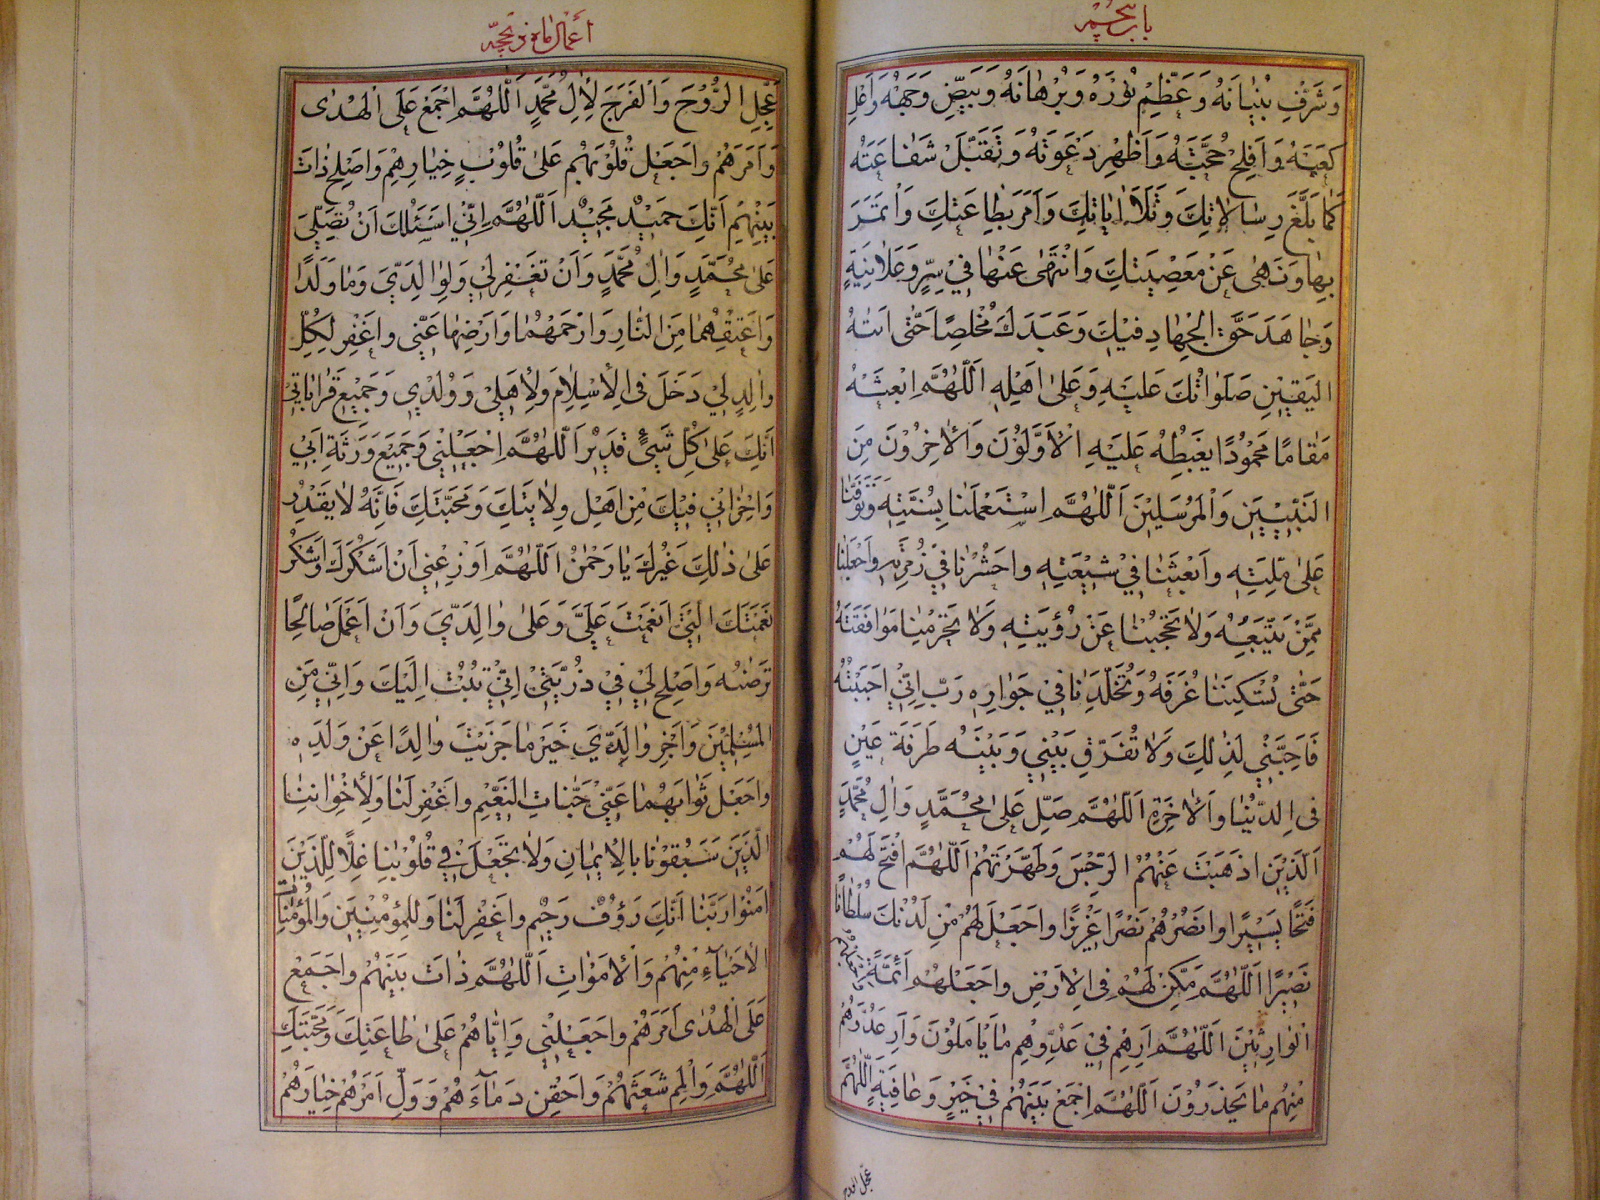 باب پنجم
وَشَرِّفْ بُنْيَانَهُ وَعَظِّمْ نُورَهُ وَبُرْهَانَهُ وَبَيِّضْ وَجْهَهُ وَاَعْلِ
كَعْبَهُ وَاَفْلِحْ حُجَّتَهُ وَاَظْهِرْ دَعْوَتَهُ وَتَقَبَّلْ شَفَاعَتَهُ
كَمَا بَلَّغَ رِسَالَاتِكَ وَتَلَا اٰيَاتِكَ وَاَمَرَ بِطَاعَتِكَ وَأْتَمَرَ
بِهَا وَنَهٰى عَنْ مَعْصِيَتِكَ وَانْتَهٰى عَنْهَا فِي سِرٍّ وَعَلَانِيَةٍ
وَجَاهَدَ حَقَّ الْجِهَادِ فِيكَ وَعَبَدَكَ مُخْلِصًا حَتّٰى اَتٰهُ
الْيَقِينُ صَلَوَاتُكَ عَلَيْهِ وَعَلٰى اَهْلِهِ اَللّٰهُمَّ ابْعَثْهُ
مَقَامًا مَحْمُودًا يَغْبِطُهُ عَلَيْهِ الْاَوَّلُونَ وَالْاٰخِرُونَ مِنَ
النَّبِيِّينَ وَالْمُرْسَلِينَ اَللّٰهُمَّ اسْتَعْمِلْنَا بِسُنَّتِهِ وَتَوَفَّنَا
عَلٰى مِلَّتِهِ وَابْعَثْنَا فِي شِيعَتِهِ وَاحْشُرْنَا فِي زُمْرَتِهِ وَاجْعَلْنَا
مِمَّنْ يَتَّبِعُهُ وَلَا تَحْجُبْنَا عَنْ رُؤْيَتِهِ وَلَا تَحْرِمْنَا مُوَافَقَتَهُ
حَتّٰى تُسْكِنَنَا غُرَفَهُ وَتُخَلِّدَنَا فِي جِوَارِهِ رَبِّ اِنِّي اَحْبَبْتُهُ
فَاَحِبَّنِي لِذٰلِكَ وَلَا تُفَرِّقْ بَيْنِي وَبَيْنَهُ طَرْفَةَ عَيْنٍ
فِي الدُّنْيَا وَالْاٰخِرَةِ اَللّٰهُمَّ صَلِّ عَلٰى مُحَمَّدٍ وَاٰلِ مُحَمَّدٍ
اَلَّذِينَ اَذْهَبْتَ عَنْهُمُ الرِّجْسَ وَطَهَّرْتَهُمْ اَللّٰهُمَّ افْتَحْ لَهُمْ
فَتْحًا يَسِيرًا وَانْصُرْهُمْ نَصْرًا عَزِيزًا وَاجْعَلْ لَهُمْ مِنْ لَدُنْكَ سُلْطَانًا
نَصِيرًا اَللّٰهُمَّ مَكِّنْ لَهُمْ فِي الْاَرْضِ وَاجْعَلْهُمْ اَئِمَّةً وَاجْعَلْهُمُ
الْوَارِثِينَ اَللّٰهُمَّ اَرِهِمْ فِي عَدُوِّهِمْ مَا يَأْمَلُونَ وَاَرِ عَدُوَّهُمْ
مِنْهُمْ مَا يَحْذَرُونَ اَللّٰهُمَّ اجْمَعْ بَيْنَهُمْ فِي خَيْرٍ وَعَافِيَةٍ اَللّٰهُمَّ
عَجِّلِ الروح
اَعمال ماه ذیحجّه
عَجِّلِ الرَّوْحَ وَالْفَرَجَ لِاٰلِ مُحَمَّدٍ اَللّٰهُمَّ اجْمَعْ عَلَى الْهُدٰى
وَاَمْرَهُمْ وَاجْعَلْ قُلُوبَهُمْ عَلٰى قُلُوبِ خِيَارِهِمْ وَاَصْلِحْ ذَاتَ
بَيْنِهِمْ اِنَّكَ حَمِيدٌ مَجِيدٌ اَللّٰهُمَّ اِنِّي اَسْئَلُكَ اَنْ تُصَلِّيَ
عَلٰى مُحَمَّدٍ وَاٰلِ مُحَمَّدٍ وَاَنْ تَغْفِرَ لِي وَلِوَالِدَيَّ وَمَا وَلَدَا
وَاَعْتِقْهُمَا مِنَ النَّارِ وَارْحَمْهُمَا وَارْضِهَا عَنِّي وَاغْفِرْ لِكُلِّ
وَالِدٍ لِي دَخَلَ فِي الْاِسْلَامِ وَلِاَهْلِي وَوُلْدِي وَجَمِيعِ قَرَابَاتِي
اِنَّكَ عَلٰى كُلِّ شَيْءٍ قَدِيرٌ اَللّٰهُمَّ اجْعَلْنِي وَجَمِيعَ وَرَثَةِ اَبِي
وَاِخْوَانِي فِيكَ مِنْ اَهْلِ وِلَايَتِكَ وَمَحَبَّتِكَ فَاِنَّهُ لَا يَقْدِرُ
عَلٰى ذٰلِكَ غَيْرُكَ يَا رَحْمٰنُ اَللّٰهُمَّ اَوْزِعْنِي اَنْ اَشْكُرَكَ وَاَشْكُرَ
نِعْمَتَكَ الَّتِي اَنْعَمْتَ عَلَيَّ وَعَلٰى وَالِدَيَّ وَاَنْ اَعْمَلَ صَالِحًا
تَرْضٰهُ وَاَصْلِحْ لِي فِي ذُرِّيَّتِي اِنِّي تُبْتُ اِلَيْكَ وَاِنِّي مِنَ
الْمُسْلِمِينَ وَاَجْزِ وَالِدَيَّ خَيْرَ مَا جَزَيْتَ وَالِدًا عَنْ وَلَدِهِ
وَاجْعَلْ ثَوَابَهُمَا عَنِّي جَنَّاتِ النَّعِيمِ وَاغْفِرْ لَنَا وَلِاِخْوَانِنَا
الَّذِينَ سَبَقُونَا بِالْاِيمَانِ وَلَا تَجْعَلْ فِي قُلُوبِنَا غِلًّا لِلَّذِينَ
اٰمَنُوا رَبَّنَا اِنَّكَ رَؤُفٌ رَحِيمٌ وَاغْفِرْ لَنَا وَلِلْمُؤْمِنِينَ وَالْمُؤْمِنَاتِ
الْاَحْيَاءِ مِنْهُمْ وَالْاَمْوَاتِ اَللّٰهُمَّ ذَاتَ بَيْنِهِمْ وَاجْمَعْ
عَلَى الْهُدٰى اَمْرَهُمْ وَاجْعَلْنِي وَاِيَّاهُمْ عَلٰى طَاعَتِكَ وَمَحَبَّتِكَ
اَللّٰهُمَّ وَالْمُمْ شَعَثَهُمْ وَاحْقِنْ دِمَاءَهُمْ وَوَلِّ اَمْرَهُمْ خِيَارَهُمْ